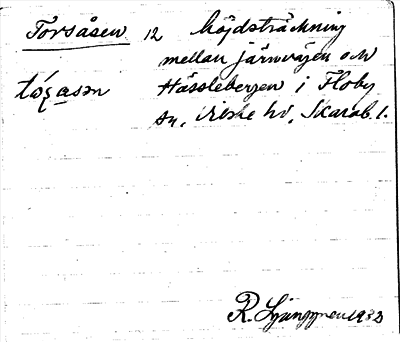 Torsåsen 12 höjdsträckning
mellan järnvägen och
tó̜ṣasən Hässlebergen i Floby
sn, Vilske hd, Skarab. l.
R. Ljunggren 1932